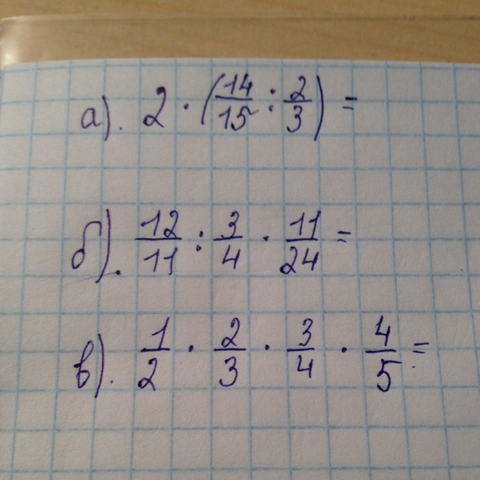 а). 2 · (14/15 : 2/3) =
б). 12/11 : 3/4 · 11/24 =
в). 1/2 · 2/3 · 3/4 · 4/5 =